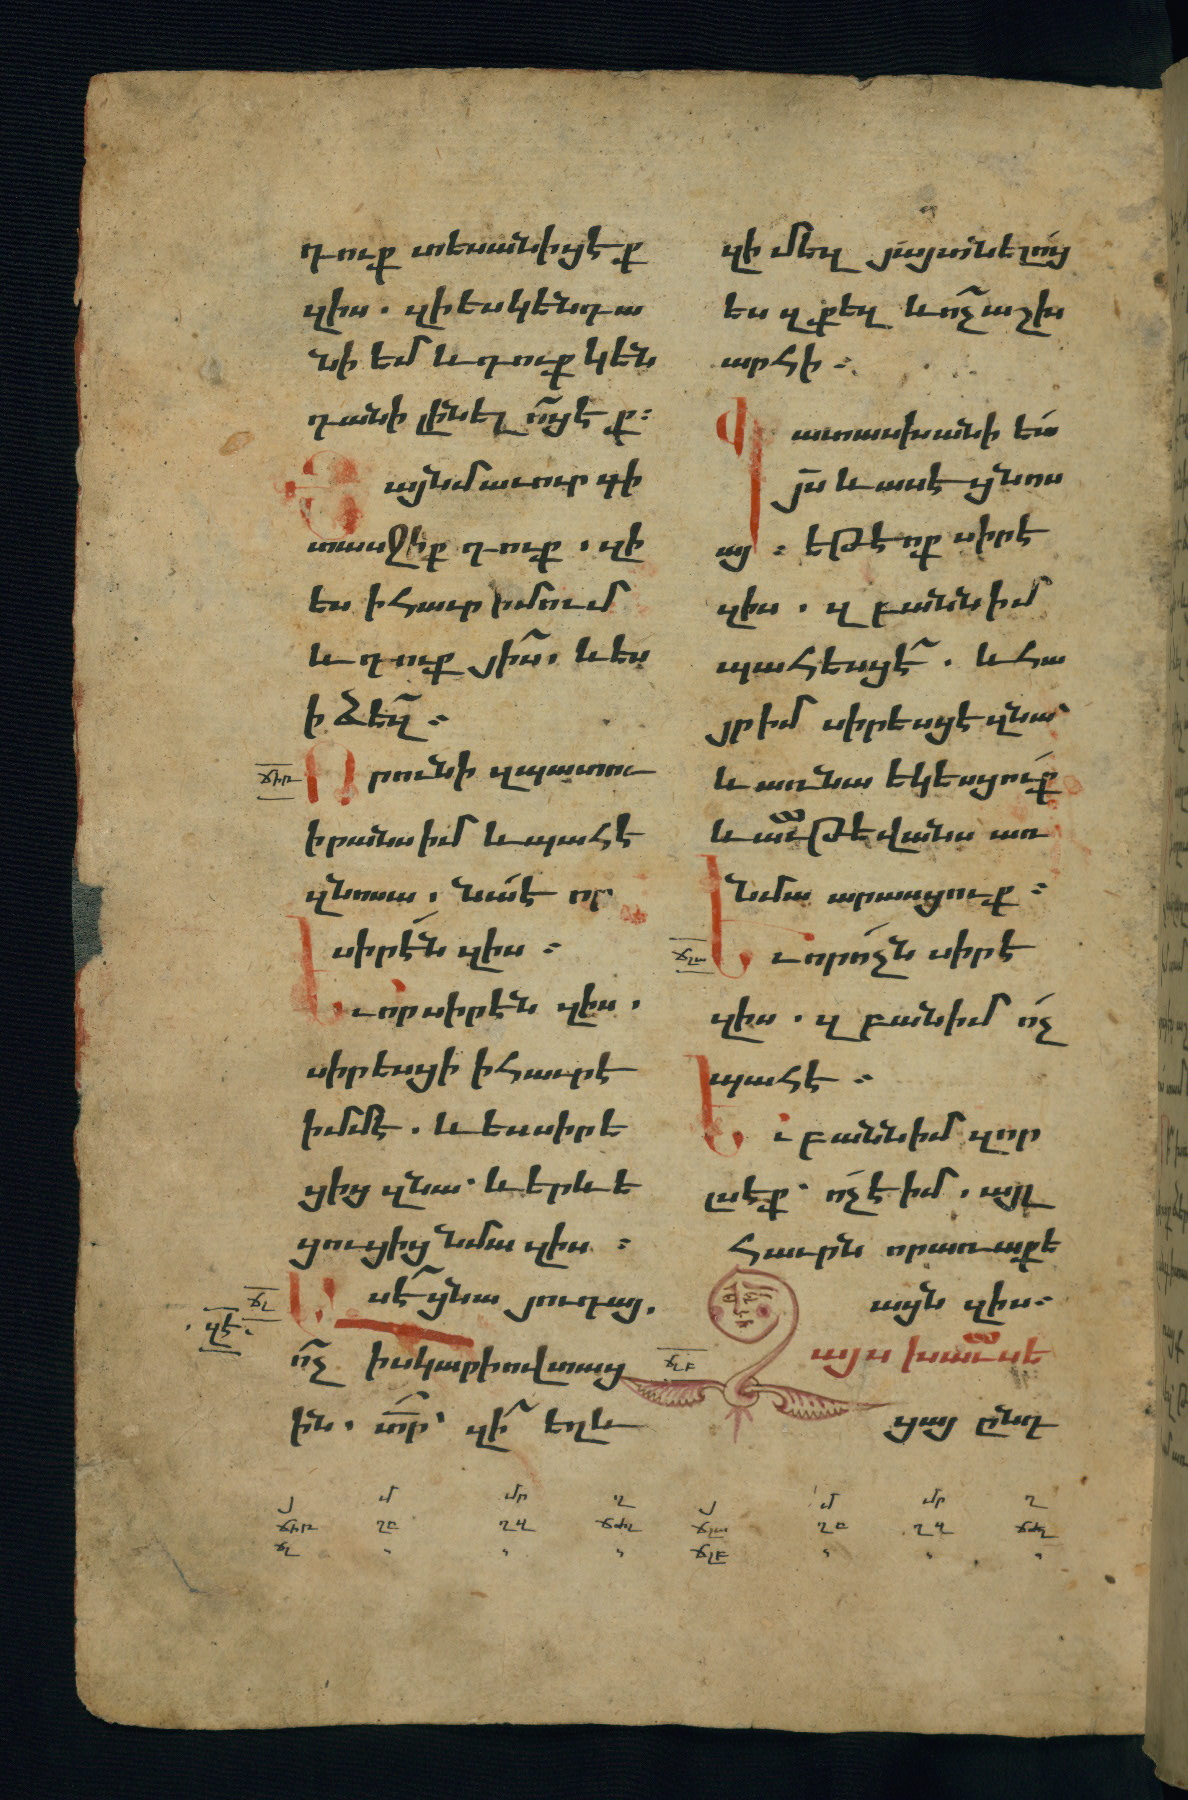 դուք տեսանիցէք
զիս. զի ես կենդա
նի եմ և դուք կեն
դանի լինել ոցէք:
Յայնմ աւուր գի
տասջիք դուք, զի
ես ի հաւր իմում
և դուք յիս. և ես
ի ձեզ:
ճիթ
Որ ունի զպատու
իրանս իմ և պահէ
զնոսա, նա է որ
սիրէն զիս:
Եւ որ սիրէն զիս.
սիրեսցի ի հաւրէ
իմմէ. և ես սիրե
ցից զնա՝ և երևե
ցուցից նմա զիս:
ճլ
Ասէ ցնա յուդայ.
ոչ իսկարիովտաց
ին. տր՝ զի՞ եղև
զի մեզ յայտնելոց
ես զքեզ և ոչ աշխ
արհի:
Պատասխանի ետ
յս և ասէ ցնոս
ա: եթէ ոք սիրէ
զիս. զբանն իմ
պահեսցէ. և հա
յր իմ սիրեսցէ զնա՝
և առ նա եկեսցուք
և աւթեվանս առ
նմա արասցուք:
ճլա
Եւ որ ոչն սիրէ
զիս. զբանիմ ոչ
պահէ:
Եւ բանն իմ զոր
լսէք՝ ոչ է իմ. այլ
հաւրն որ առաքե
այն զիս:
ճլբ
Զայս խաւսե
ցայ ընդ